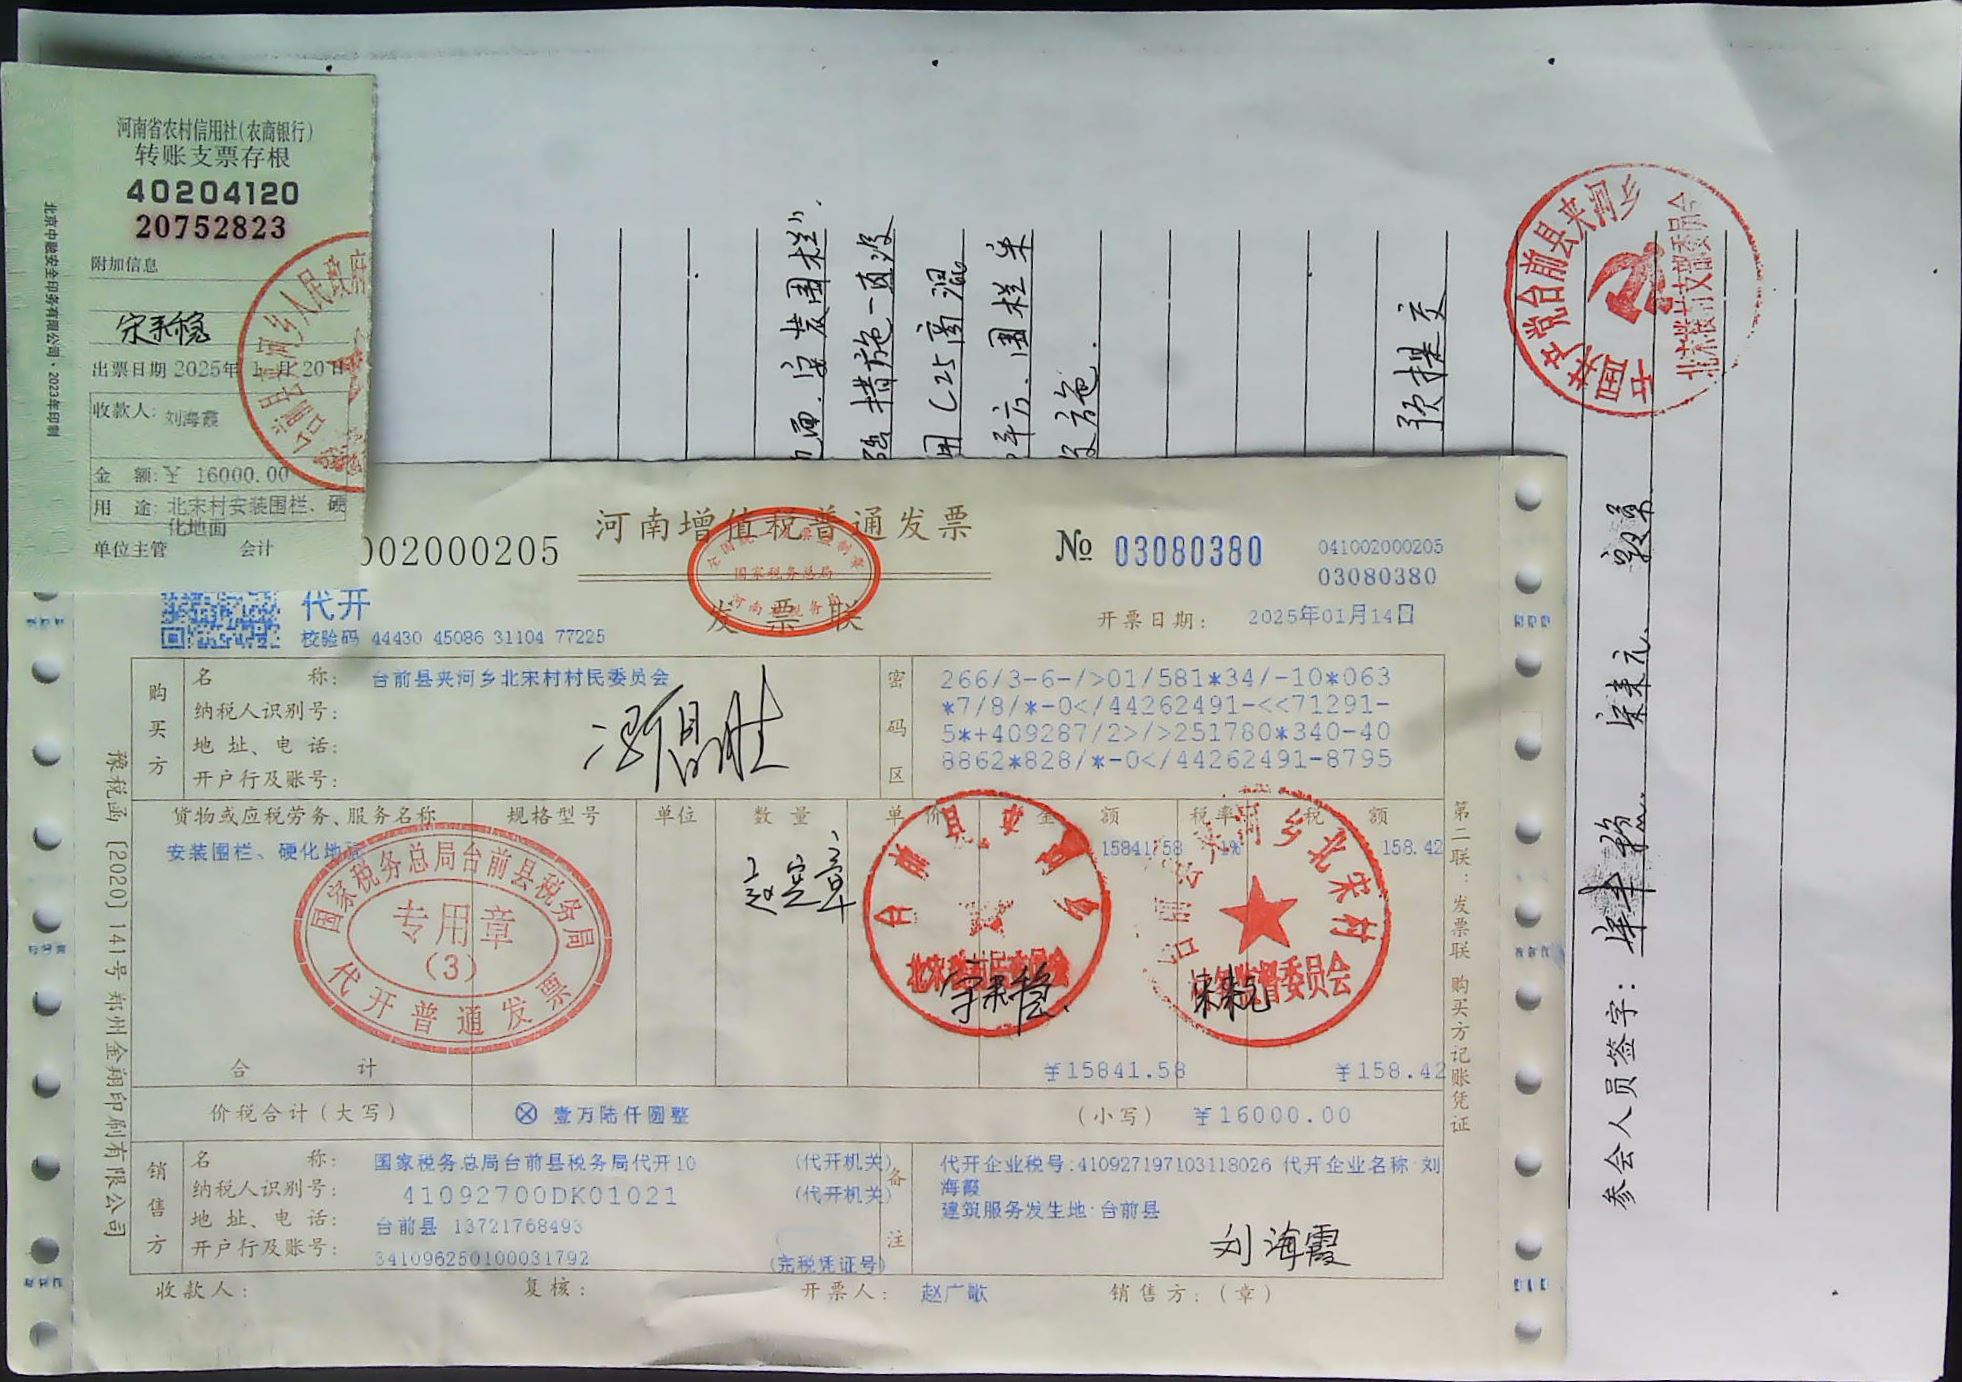 河南省农村信用社(农商银行)
转账支票存根
40204120
20752823
附加信息
出票日期 2025年1月20日
收款人: 刘海霞
金 额: ¥ 16000.00
用 途: 北宋村安装围栏、硬
化地面
单位主管 会计
北京中融安全印务有限公司·2023年印制
002000205
河南增值税普通发票
发票联
国家税务总局
№ 03080380
041002000205
03080380
开票日期: 2025年01月14日
代开
校验码 44430 45086 31104 77225
购买方
名 称: 台前县夹河乡北宋村村民委员会
纳税人识别号:
地 址、电 话:
开户行及账号:
冯昌胜
密码区
266/3-6-/>01/581*34/-10*063
*7/8/*-0</44262491-<<71291-
5*+409287/2>/>251780*340-40
8862*828/*-0</44262491-8795
货物或应税劳务、服务名称 规格型号 单位 数量 单价 金额 税率 税额
安装围栏、硬化地 15841.58 1% 158.42
国家税务总局台前县税务局
专用章
(3)
代开普通发票
合 计 ¥15841.58 ¥158.42
价税合计(大写) ⊗ 壹万陆仟圆整 (小写) ¥16000.00
销售方
名 称: 国家税务总局台前县税务局代开10 (代开机关)
纳税人识别号: 41092700DK01021 (代开机关)
地 址、电 话: 台前县 13721768493
开户行及账号: 341096250100031792 (完税凭证号)
备注
代开企业税号:410927197103118026 代开企业名称:刘
海霞
建筑服务发生地:台前县
刘海霞
收款人: 复核: 开票人: 赵广歌 销售方:(章)
第二联:发票联 购买方记账凭证
豫税函〔2020〕141号 郑州金翔印刷有限公司
安装围栏".
措施一直没
用C25商混
围栏采
预提交
参会人员签字:
中国共产党台前县夹河乡
北宋村支部委员会